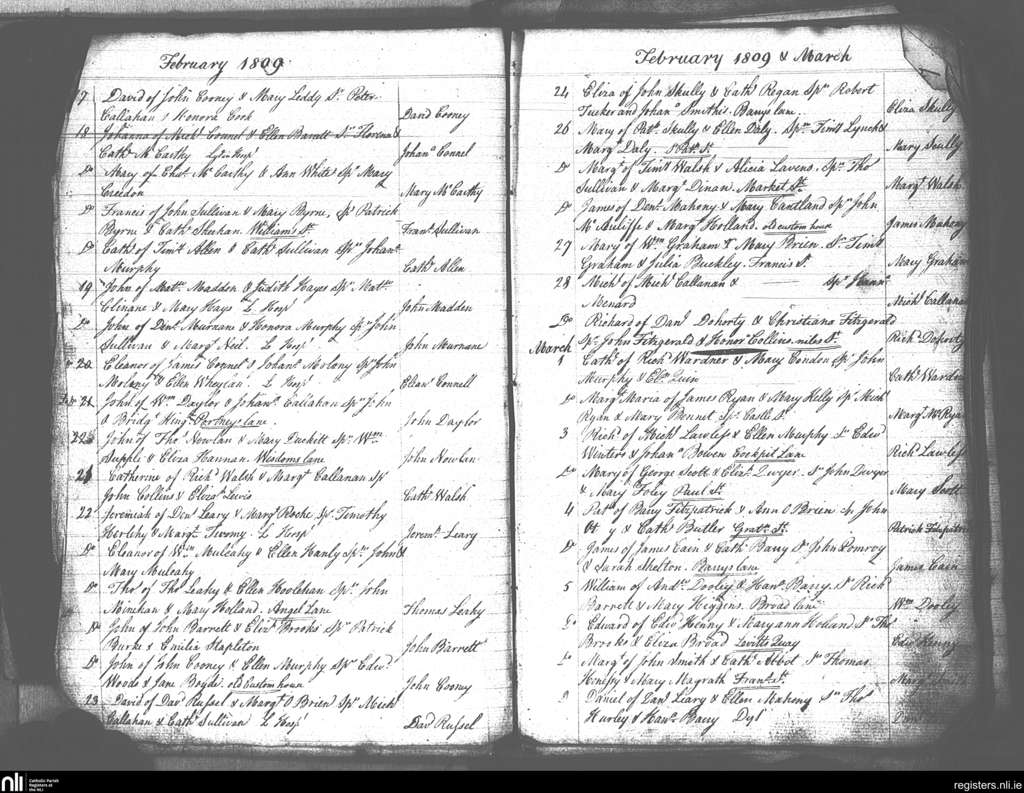 February 1809
17 David of John Cooney & Mary Leddy Sp. Peter
Callahan & Honora Cook David Cooney
18 Johanna of Michl Connel & Ellen Barrett Sps Florence &
Cathe McCarthy Johana Connel
Do Mary of Chas McCarthy & Ann White Sps Mary
Creedon Mary McCarthy
Do Francis of John Sullivan & Mary Byrne, Sps Patrick
Byrne & Cathe Sheehan. Williams St. Frans Sullivan
Do Cathe of Timt Allen & Cathe Sullivan Sps Johana
Murphy Cathe Allen
19 John of Matt. Madden & Judith Hayes Sps Matt.
Clinane & Mary Hays L. Hospl John Madden
Do John of Dens Murnane & Honora Murphy Sps John
Sullivan & Margt Neil. L. Hospl John Murnane
20 Eleanor of James Connel & Johana Molony Sps John
Molony & Ellen Whelan. L. Hospl Elean Connell
21 John of Wm Daylor & Johana Callahan Sps John
& Bridgt King Portneys lane. John Daylor
22 John of Thos Nowlan & Mary Duckett Sps Wm
Supple & Eliza Hannan. Wisdoms lane John Nowlan
21 Catherine of Richd Walsh & Margt Callanan Sps
John Collins & Elizth Lewis Cathe Walsh
22 Jeremiah of Dens Leary & Margt Roche Sps Timothy
Herlihy & Margt Twomy. L. Hospl Jeremh Leary
Do Eleanor of Wm Mulcahy & Ellen Hanly Sps John &
Mary Mulcahy
Do Thos of Thos Leahy & Ellen Hoolehan Sps John
Minehan & Mary Holland. Angel Lane Thomas Leahy
Do John of John Barrett & Elizth Brooks Sps Patrick
Burke & Emilia Stapleton John Barrett
Do John of John Cooney & Ellen Murphy Sps Edwd
Woods & Jane Boyde. old Custom house John Cooney
23 David of Davd Russel & Margt O Brien Sps Michl
Callahan & Cathe Sullivan L. Hospl Davd Russel
February 1809 & March
24 Eliza of John Skully & Cathe Regan Sps Robert
Tucker and Johana Smithis. Barrys lane. Eliza Skully
26 Mary of Patt. Skully & Ellen Daly. Sps Timt Lynch &
Margt Daly. Mary Scully
Do Margt of Timt Walsh & Alicia Lavens. Sps Thos
Sullivan & Margt Dinan. Market St. Margt Walsh
Do James of Dens Mahony & Mary Cantland Sps John
McAuliffe & Margt Holland. old custom house James Mahony
27 Mary of Wm Graham & Mary Brien. Sps Timt
Graham & Julia Buckley. Francis St. Mary Graham
28 Michl of Michl Callanan & Sps
Menard Michl Callanan
Do Richard of Danl Doherty & Christiana Fitzgerald
Sps John Fitzgerald & Honor Collins. Richd Doherty
March
1 Cathe of Richd Wardner & Mary Condon Sps John
Murphy & Elizth Quin Cathe Warden
Do Margt Maria of James Ryan & Mary Kelly Sps Michl
Ryan & Mary Bennet Sps. Castle St. Margt Ma Ryan
3 Richd of Michl Lawless & Ellen Murphy Sps Edwd
Winters & Johana Bowen Cockpit Lane Richd Lawless
Do Mary of George Scott & Eliza. Dwyer. Sps John Dwyer
& Mary Foley Paul St. Mary Scott
4 Patk of Barry Fitzpatrick & Ann O Brien Sps John
& Cathe Butler Gratn St. Patrick Fitzpatrick
Do James of James Cain & Cathe Barry Sps John Pomroy
& Sarah Skelton. Barrys lane James Cain
5 William of Andw. Dooley & Hana Barry. Sps Richd
Barrett & Mary Higgins. Broad lane Wm Dooley
Do Edward of Edwd Henny & Maryann Holland Sps Thos
Brooks & Eliza Broad Lavitts Quay Edwd Henny
Do Margt of John Smith & Cathe Abbot Sps Thomas
& Mary Magrath Frans. St.
Daniel of Danl Leary & Ellen Mahony Sps Thos
Hurley & Hana Barry
nli Catholic Parish
Registers at
the NLI
registers.nli.ie